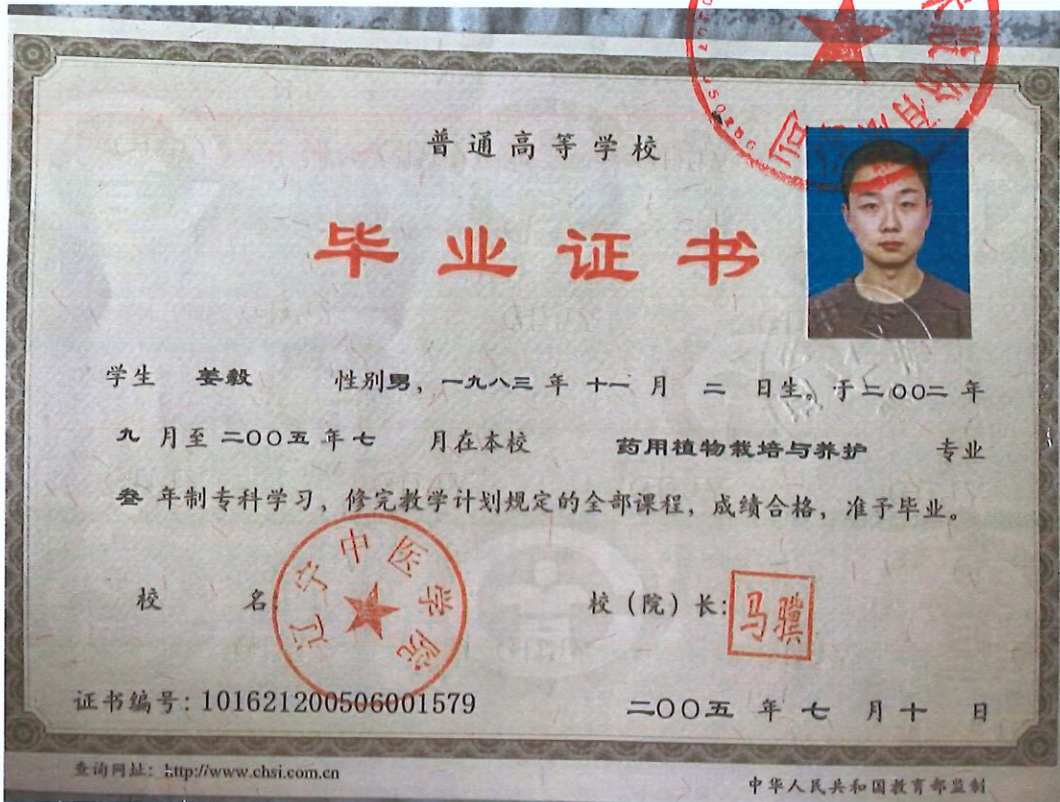 普通高等学校
毕业证书
学生 姜毅 性别男，一九八三年 十一 月 二 日生。于二〇〇二年
九 月至 二〇〇五 年 七 月在本校 药用植物栽培与养护 专业
叁 年制专科学习，修完教学计划规定的全部课程，成绩合格，准予毕业。
校 名
辽宁中医学院
校（院）长：
马骥
证书编号：101621200506001579
二〇〇五 年 七 月 十 日
查询网址：http://www.chsi.com.cn
中华人民共和国教育部监制